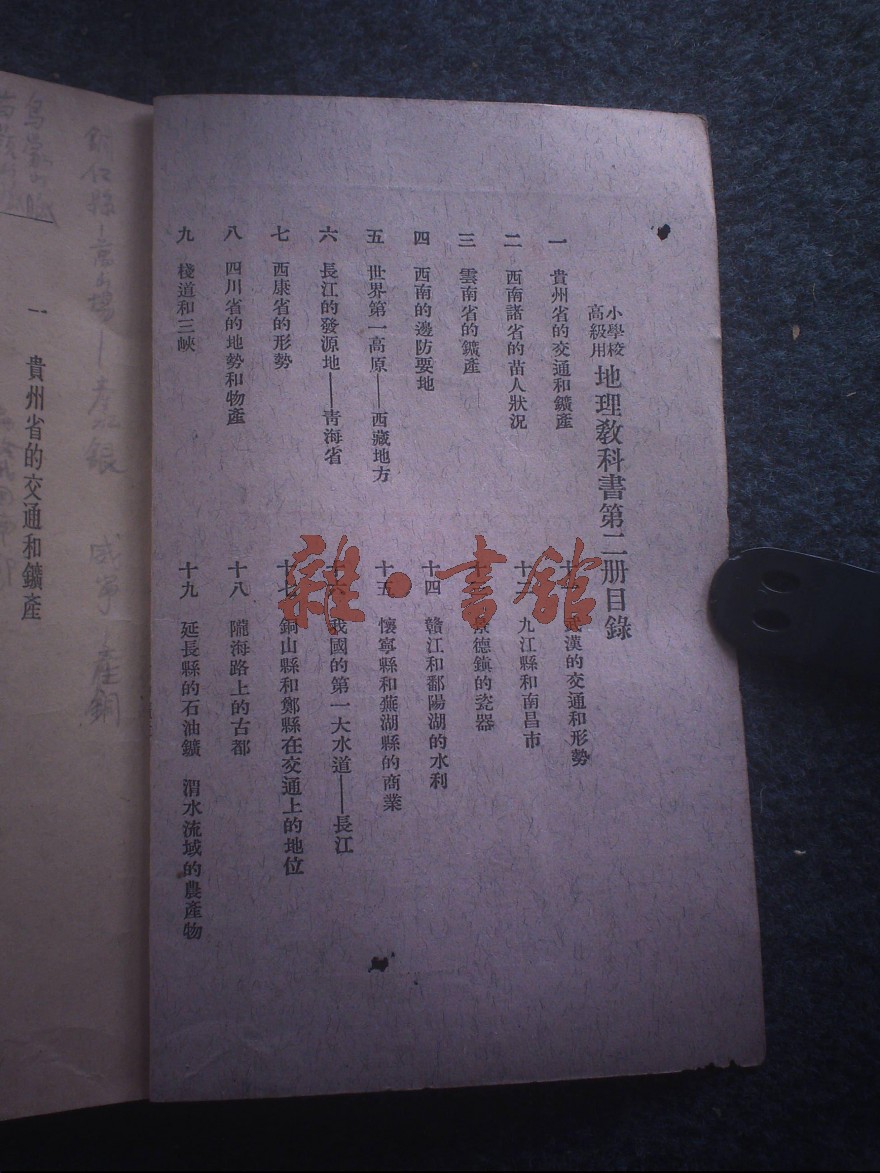 小學校
高級用
地理敎科書第二册目錄
一 貴州省的交通和鑛產
二 西南諸省的苗人狀況
三 雲南省的鑛產
四 西南的邊防要地
五 世界第一高原——西藏地方
六 長江的發源地——靑海省
七 西康省的形勢
八 四川省的地勢和物產
九 棧道和三峽
武漢的交通和形勢
十二 九江縣和南昌市
景德鎭的瓷器
十四 贛江和鄱陽湖的水利
十五 懷寧縣和蕪湖縣的商業
十六 我國的第一大水道——長江
十七 銅山縣和鄭縣在交通上的地位
十八 隴海路上的古都
十九 延長縣的石油鑛 渭水流域的農產物
雜·書館
銅仁縣—萬山場—產水銀 威寧 產銅
一 貴州省的交通和鑛產